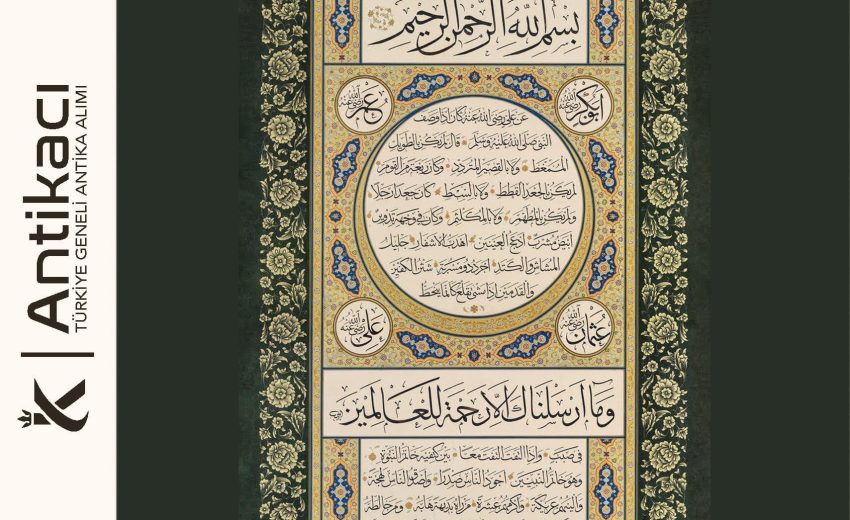 Antikacı
TÜRKİYE GENELİ ANTİKA ALIMI
بسم الله الرحمن الرحيم
ابوبكر رضي الله عنه
عمر رضي الله عنه
عن علي رضي الله عنه كان اذا وصف
النبي صلى الله عليه وسلم قال لم يكن بالطويل
الممغط ولا بالقصير المتردد وكان ربعة من القوم
لم يكن بالجعد القطط ولا بالسبط كان جعدا رجلا
ولم يكن بالمطهم ولا بالمكلثم وكان في وجهه تدوير
ابيض مشرب ادعج العينين اهدب الاشفار جليل
المشاش والكتد اجرد ذو مسربة شثن الكفين
والقدمين اذا مشى تقلع كانما ينحط
عثمان رضي الله عنه
علي رضي الله عنه
وما ارسلناك الا رحمة للعالمين
في صبب واذا التفت التفت معا بين كتفيه خاتم النبوة
وهو خاتم النبيين اجود الناس صدرا واصدق الناس لهجة
والينهم عريكة واكرمهم عشرة من راه بديهة هابه ومن خالطه